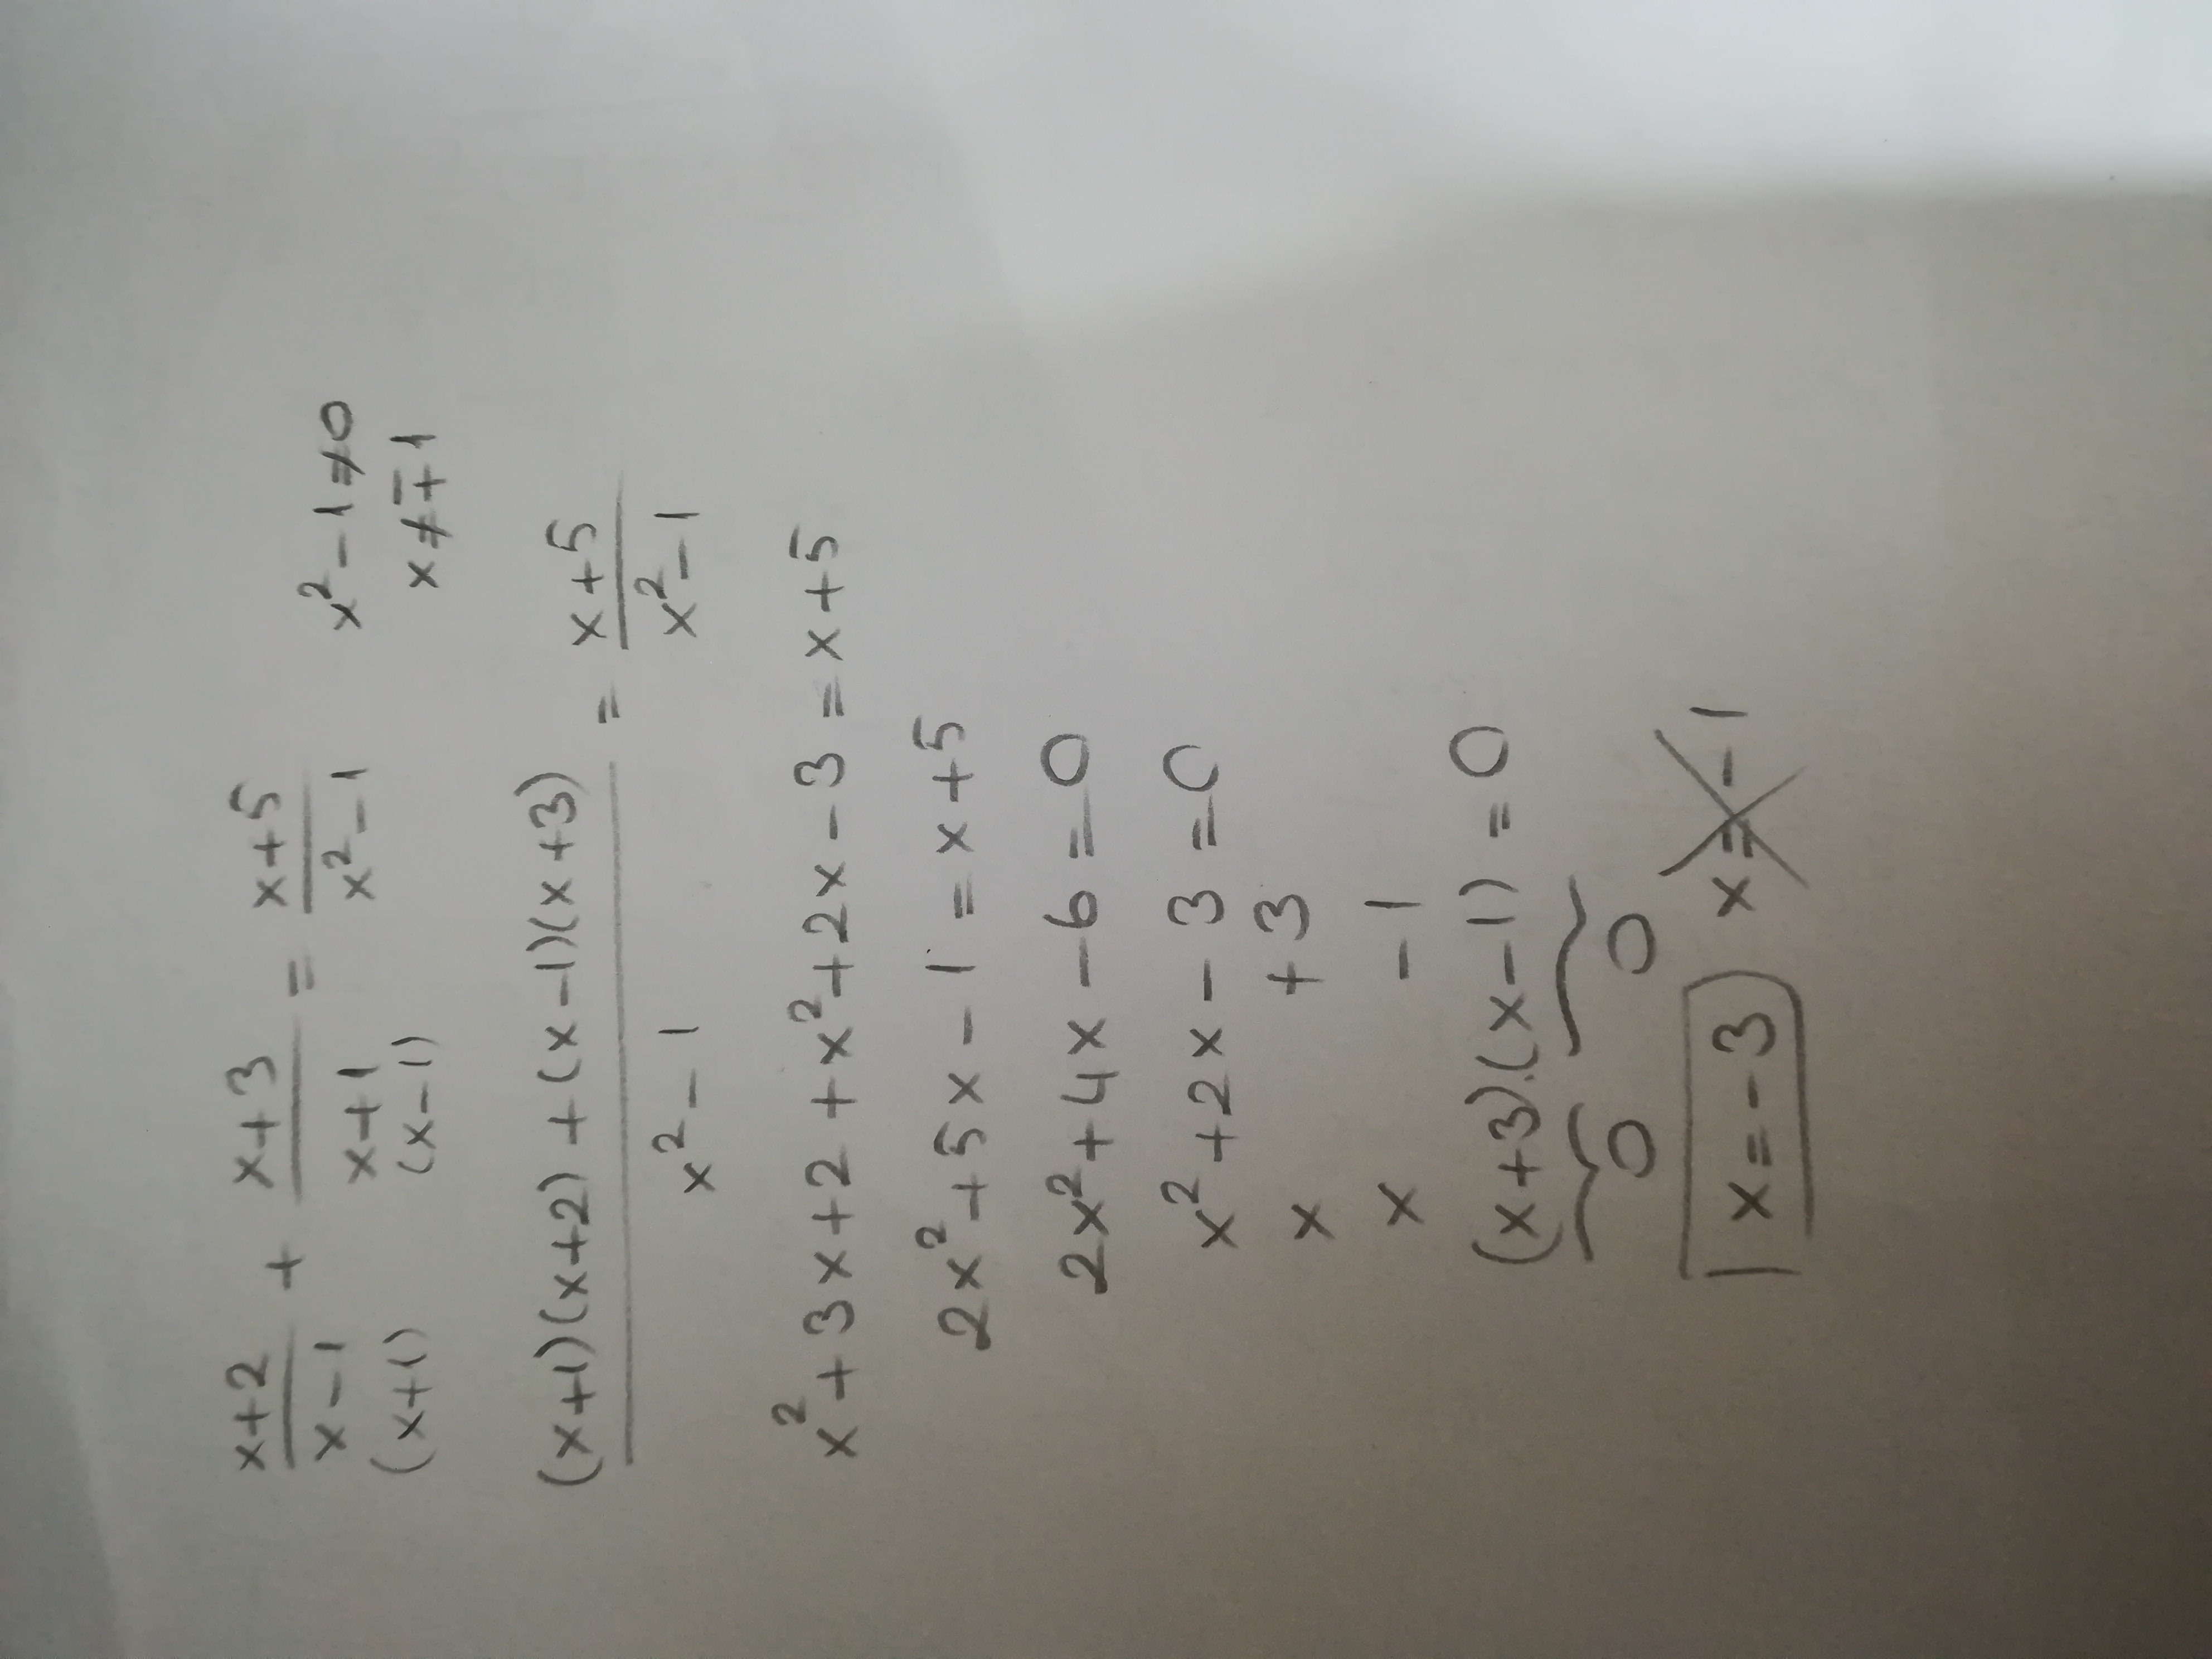 x+2/x-1 + x+3/x+1 = x+5/x²-1   x²-1≠0
(x+1)   (x-1)   x≠∓1
(x+1)(x+2)+(x-1)(x+3)/x²-1 = x+5/x²-1
x²+3x+2+x²+2x-3=x+5
2x²+5x-1=x+5
2x²+4x-6=0
x²+2x-3=0
x +3
x -1
(x+3).(x-1)=0
0 0
x=-3 x=-1